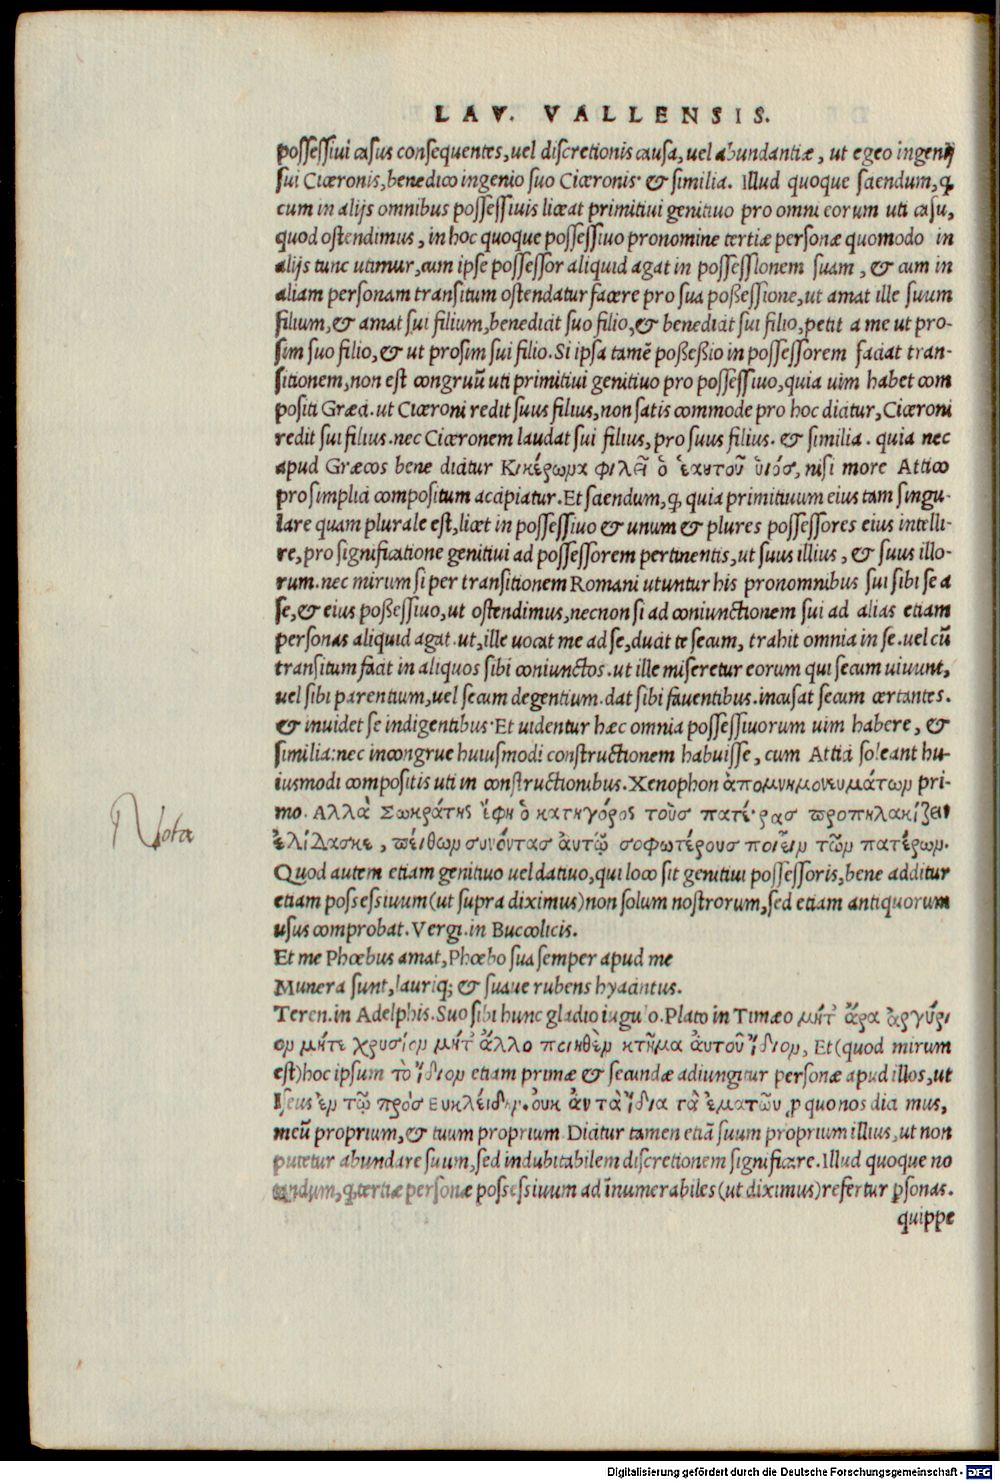 LAV. VALLENSIS.
possessiui casus consequentes, uel discretionis causa, uel abundantiæ, ut egeo ingenij
sui Ciceronis, benedico ingenio suo Ciceronis· & similia. Illud quoque sciendum, q̃
cum in alijs omnibus possessiuis liceat primitiui genitiuo pro omni eorum uti casu,
quod ostendimus, in hoc quoque possessiuo pronomine tertiæ personæ quomodo in
alijs tunc utimur, cum ipse possessor aliquid agat in possessionem suam, & cum in
aliam personam transitum ostendatur facere pro sua poßessione, ut amat ille suum
filium, & amat sui filium, benedicit suo filio, & benedicit sui filio, petit a me ut pro-
sim suo filio, & ut prosim sui filio. Si ipsa tamẽ poßeßio in possessorem faciat tran-
sitionem, non est congruũ uti primitiui genitiuo pro possessiuo, quia uim habet com
positi Græci. ut Ciceroni redit suus filius, non satis commode pro hoc dicitur, Ciceroni
redit sui filius. nec Ciceronem laudat sui filius, pro suus filius. & similia. quia nec
apud Græcos bene dicitur Κικέρωνα φιλεῖ ὁ ἑαυτοῦ ὑιός, nisi more Attico
pro simplici compositum accipiatur. Et sciendum, q̃, quia primitiuum eius tam singu-
lare quam plurale est, licet in possessiuo & unum & plures possessores eius intelli-
re, pro significatione genitiui ad possessorem pertinentis, ut suus illius, & suus illo-
rum. nec mirum si per transitionem Romani utuntur his pronomnibus sui sibi se a
se, & eius poßessiuo, ut ostendimus, necnon si ad coniunctionem sui ad alias etiam
personas aliquid agat. ut, ille uocat me ad se, ducit te secum, trahit omnia in se. uel cũ
transitum facit in aliquos sibi coniunctos. ut ille miseretur eorum qui secum uiuunt,
uel sibi parentium, uel secum degentium. dat sibi fauentibus. incusat secum certantes.
& inuidet se indigentibus· Et uidentur hæc omnia possessiuorum uim habere, &
similia: nec incongrue huiusmodi constructionem habuisse, cum Attici soleant hu-
iusmodi compositis uti in constructionibus. Xenophon ἀπομνημονευμάτων pri-
mo. Αλλὰ Σωκράτης ἔφη ὁ κατηγόρος τοὺς πατέρας προπηλακίζειν
ἐλίδασκε, πείθων συνόντας ἀυτῷ σοφωτέρους ποιεῖν τῶν πατέρων.
Quod autem etiam genitiuo uel datiuo, qui loco sit genitiui possessoris, bene additur
etiam possessiuum (ut supra diximus) non solum nostrorum, sed etiam antiquorum
usus comprobat. Vergi. in Bucolicis.
Et me Phœbus amat, Phœbo sua semper apud me
Munera sunt, lauriq; & suaue rubens hyacintus.
Teren. in Adelphis. Suo sibi hunc gladio iugulo. Plato in Timæo μήτ᾽ ἄρα ἀργύρι
ον μήτε χρυσίον μήτ᾽ ἄλλο ποιηθὲν κτῆμα ἀυτοῦ ἴδιον, Et (quod mirum
est) hoc ipsum τὸ ἴδιον etiam primæ & secundæ adiungitur personæ apud illos, ut
Iseus ἐν τῷ πρὸς Ευκλείδην. ὀυκ ἀν τὰ ἴδια τὰ ἐματῶυ ꝓ quo nos dici mus,
meũ proprium, & tuum proprium Dicitur tamen etiã suum proprium illius, ut non
putetur abundare suum, sed indubitabilem discretionem significare. Illud quoque no
tandum, q̃ tertiæ personæ possessiuum ad innumerabiles (ut diximus) refertur ꝑsonas.
quippe
Nota
Digitalisierung gefördert durch die Deutsche Forschungsgemeinschaft - DFG